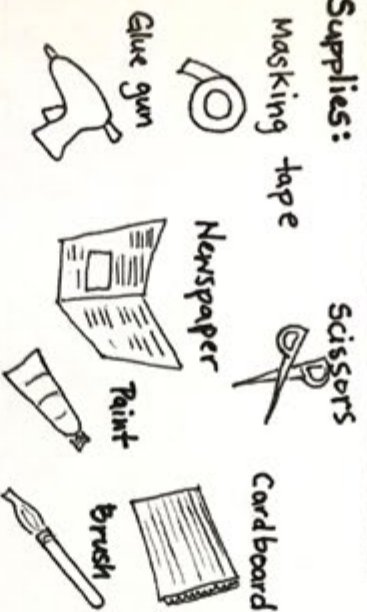 Supplies:
Masking tape
Scissors
Cardboard
Glue gun
Newspaper
Paint
Brush